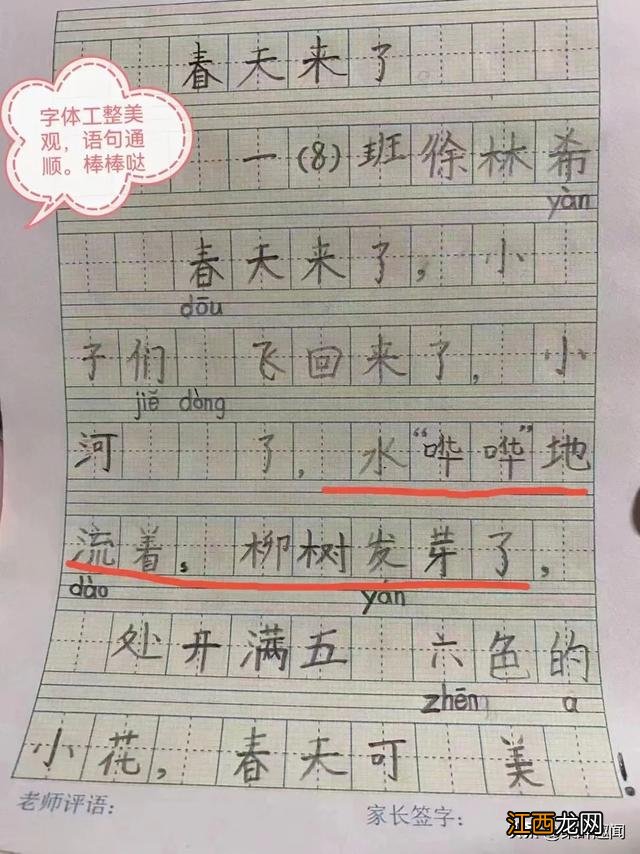 春天来了
字体工整美
观，语句通
顺。棒棒哒
一(8)班徐林希
yàn
春天来了，小
dōu
子们 飞回来了，小
jiě dòng
河 了，水“哗哗”地
流着，柳树发芽了，
dào yán
处开满五 六色的
zhēn a
小花，春天可 美！
老师评语：
家长签字：
江西龙网